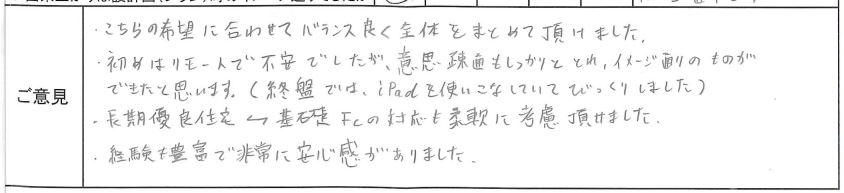 ご意見
・こちらの希望に合わせてバランス良く全体をまとめて頂けました。
・初めはリモートで不安でしたが、意思疎通もしっかりととれ、イメージ通りのものが
できたと思います。(終盤では、iPadを使いこなしていてびっくりしました)
・長期優良住宅 ↔ 基礎Fcの対応も柔軟に考慮頂けました。
・経験も豊富で非常に安心感がありました。